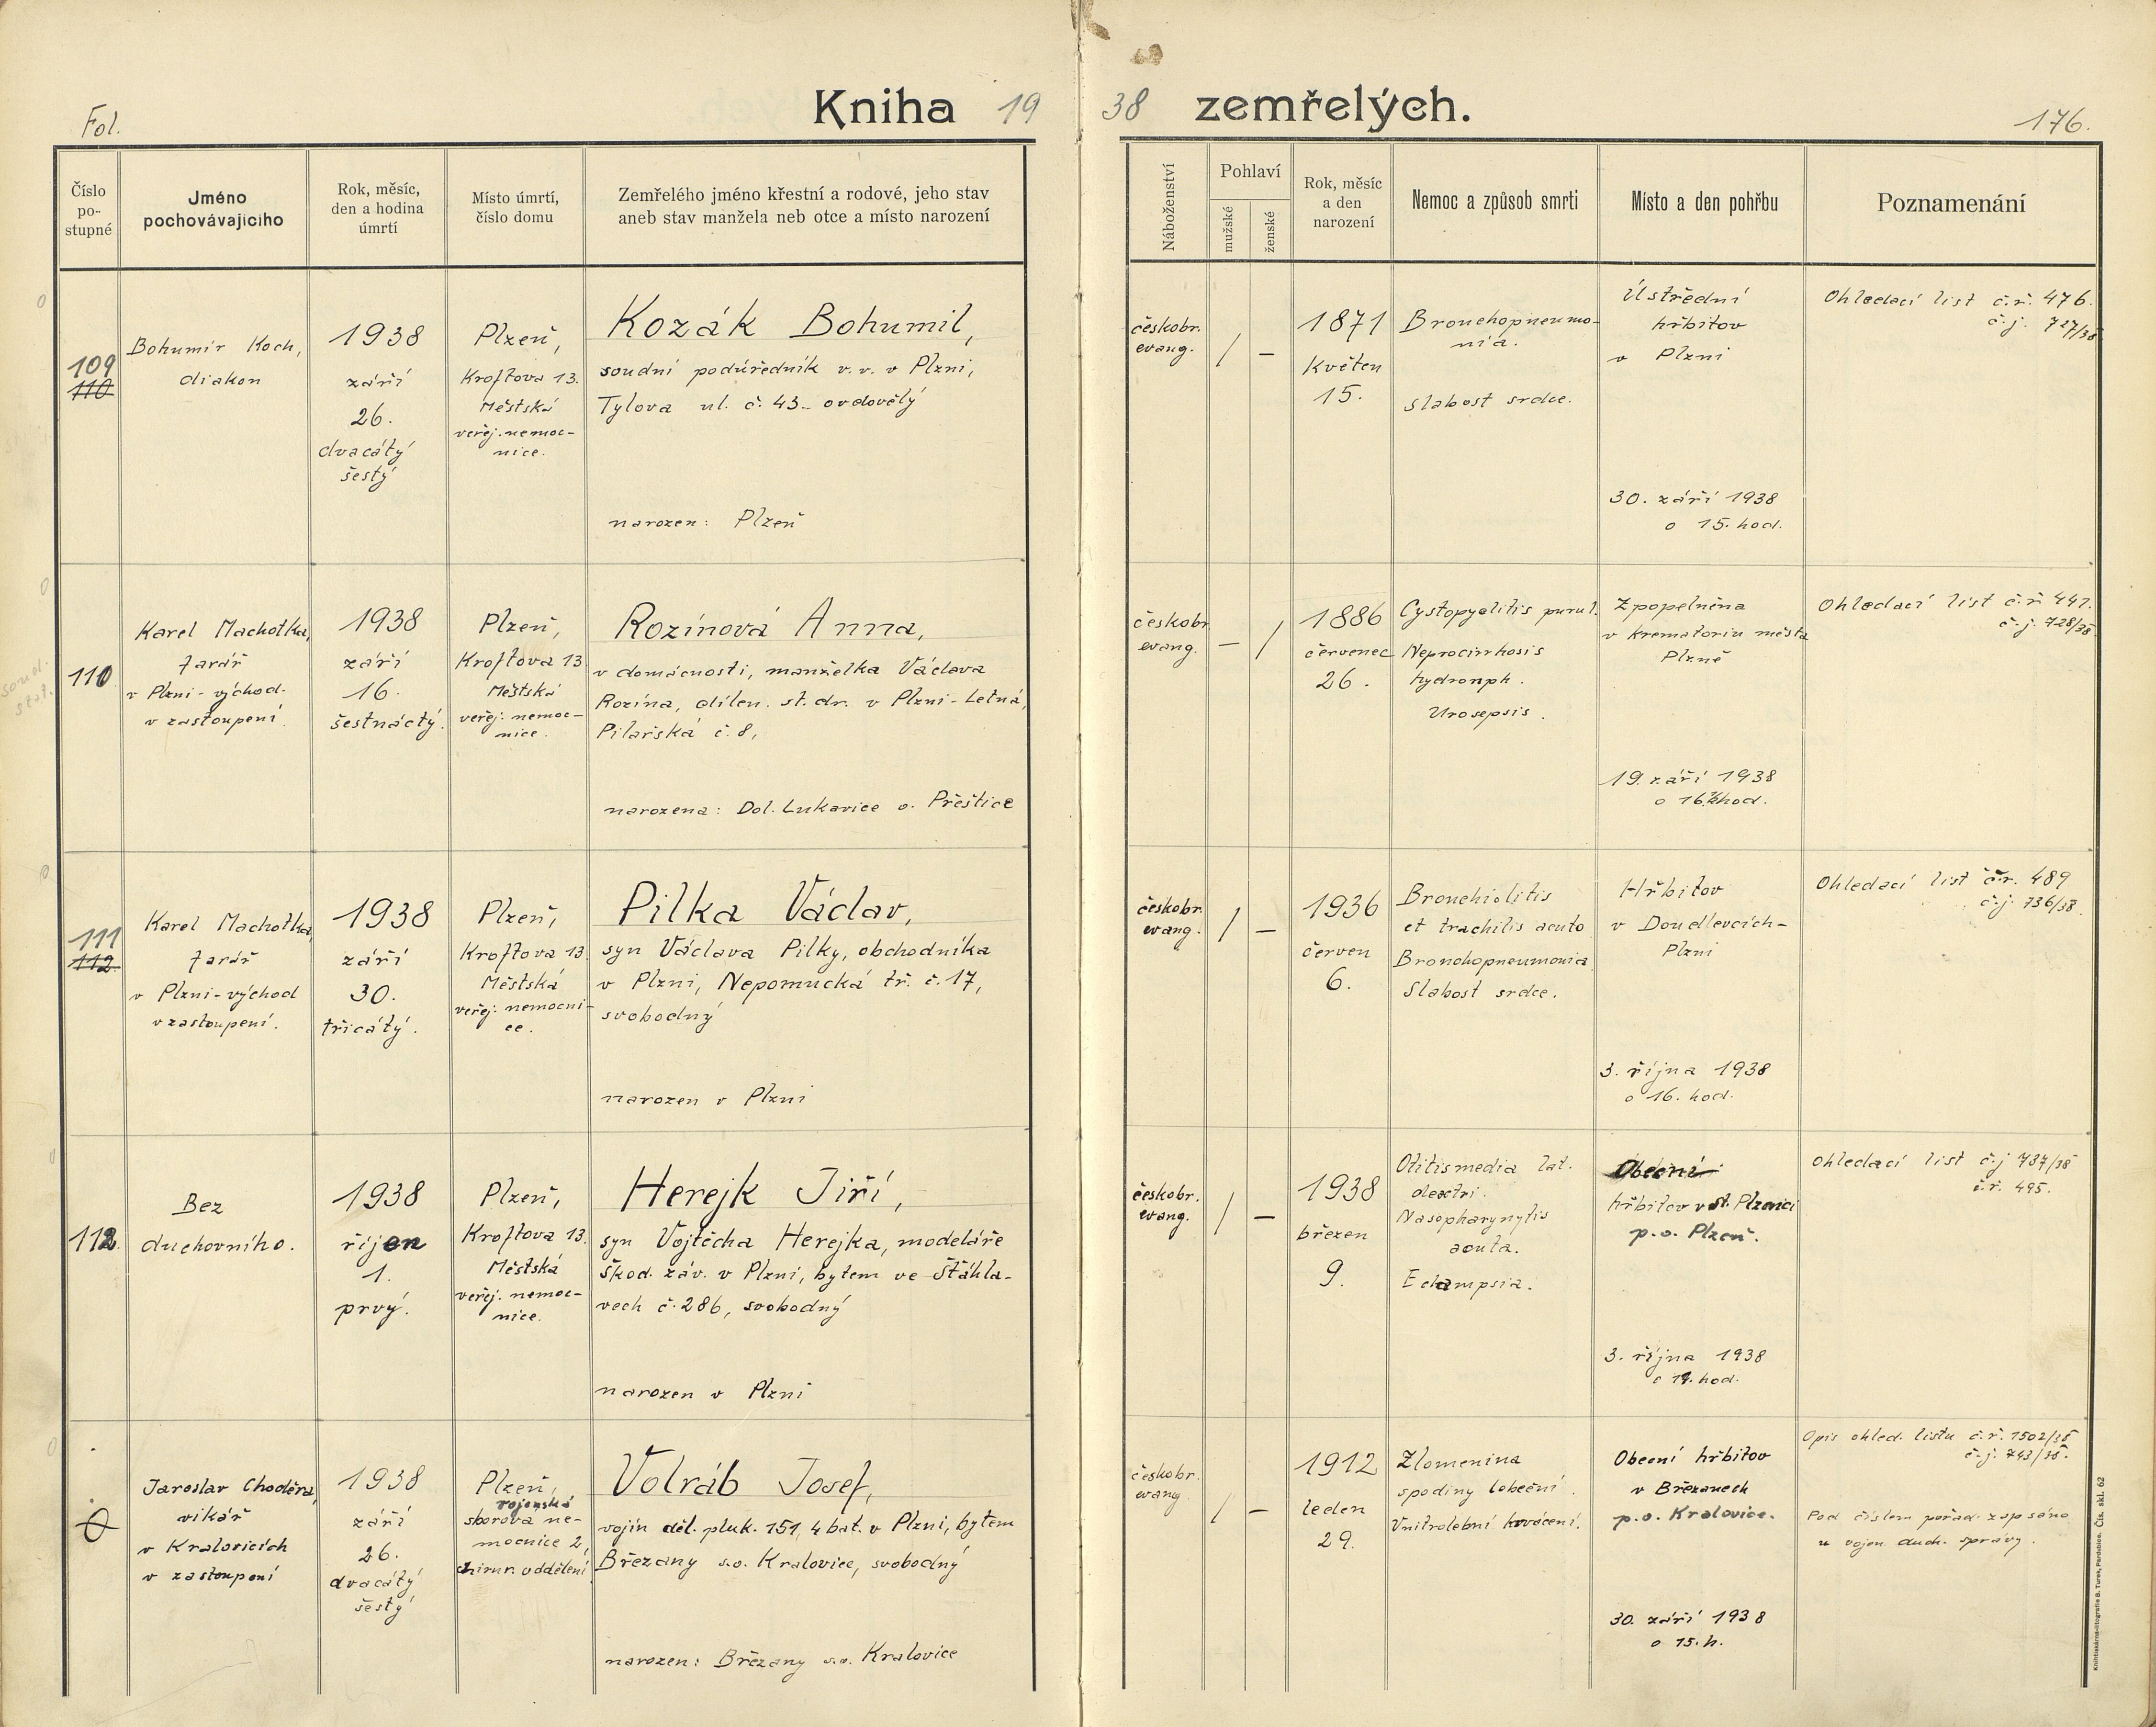 Fol.
Kniha 1938 zemřelých.
176.
Číslo po-stupné
Jméno pochovávajícího
Rok, měsíc, den a hodina úmrtí
Místo úmrtí, číslo domu
Zemřelého jméno křestní a rodové, jeho stav
aneb stav manžela neb otce a místo narození
Náboženství
Pohlaví
mužské
ženské
Rok, měsíc a den narození
Nemoc a způsob smrti
Místo a den pohřbu
Poznamenání
109
110
Bohumír Koch,
diakon
1938
září
26.
dvacátý
šestý
Plzeň,
Kroftova 13.
Městská
veřej. nemoc-
nice.
Kozák Bohumil,
soudní podúředník v.v. v Plzni,
Tylova ul. č. 43. ovdovělý
narozen: Plzeň
českobr.
evang.
/ —
1871
Květen
15.
Bronchopneumo-
nia.
Slabost srdce.
Ústřední
hřbitov
v Plzni
30. září 1938
o 15. hod.
Ohledací list č.ř. 476.
č.j. 727/38
110
Karel Machotka,
farář
v Plzni-východ.
v zastoupení.
1938
září
16.
šestnáctý.
Plzeň,
Kroftova 13
Městská
veřej. nemoc-
nice.
Rozínová Anna,
v domácnosti, manželka Václava
Rozína, dílen. st. dr. v Plzni-Letná,
Pilařská č. 8,
narozena: Dol. Lukavice o. Přeštice
českobr.
evang.
— /
1886
červenec
26.
Cystopyelitis purul.
Neprocirrhosis
hydronph.
Urosepsis.
Zpopelněna
v krematoriu města
Plzně
19. září 1938
Ohledací list č.ř. 441.
č.j. 728/38
111
112
Karel Machotka,
farář
v Plzni-východ
v zastoupení.
1938
září
30.
třicátý.
Plzeň,
Kroftova 13
Městská
veřej. nemocni-
ce.
Pilka Václav,
syn Václava Pilky, obchodníka
v Plzni, Nepomucká tř. č. 17,
svobodný
narozen v Plzni
českobr.
evang.
/ —
1936
červen
6.
Bronchiolitis
et trachitis acuto
Bronchopneumonia
Slabost srdce.
Hřbitov
v Doudlevcích-
Plzni
3. října 1938
o 16. hod.
Ohledací list č.ř. 489
č.j. 736/38.
112.
Bez
duchovního.
1938
říjen
1.
prvý.
Plzeň,
Kroftova 13.
Městská
veřej. nemoc-
nice.
Herejk Jiří,
syn Vojtěcha Herejka, modeláře
Škod. záv. v Plzni, bytem ve Šťáhla-
vech č. 286, svobodný
narozen v Plzni
českobr.
evang.
/ —
1938
březen
9.
Otitis media lat.
dextri.
Nasopharynytis
acuta.
Eclampsia.
Obecní
hřbitov v st. Plzenci
p.o. Plzeň.
3. října 1938
Ohledací list č.j 737/38
č.ř. 495.
0
Jaroslav Choděra,
vikář
v Kralovicích
v zastoupení
1938
září
26.
dvacátý
šestý
Plzeň,
vojenská
sborová ne-
mocnice 2,
chirur. oddělení
Volráb Josef,
vojín děl. pluk. 151, 4 bat. v Plzni, bytem
Břežany s.o. Kralovice, svobodný
narozen: Břežany s.o. Kralovice
českobr.
evang
/ —
1912
leden
29.
Zlomenina
spodiny lebeční.
Vnitrolební krvácení.
Obecní hřbitov
v Břežanech
p.o. Kralovice.
30. září 1938
o 15. h.
Opis ohled. listu č.ř. 1502/38
č.j. 743/38.
Pod číslem pořad. zapsáno
u vojen. duch. správy.
Knihtiskárna-litografie B. Turek, Pardubice. Čís. skl. 62